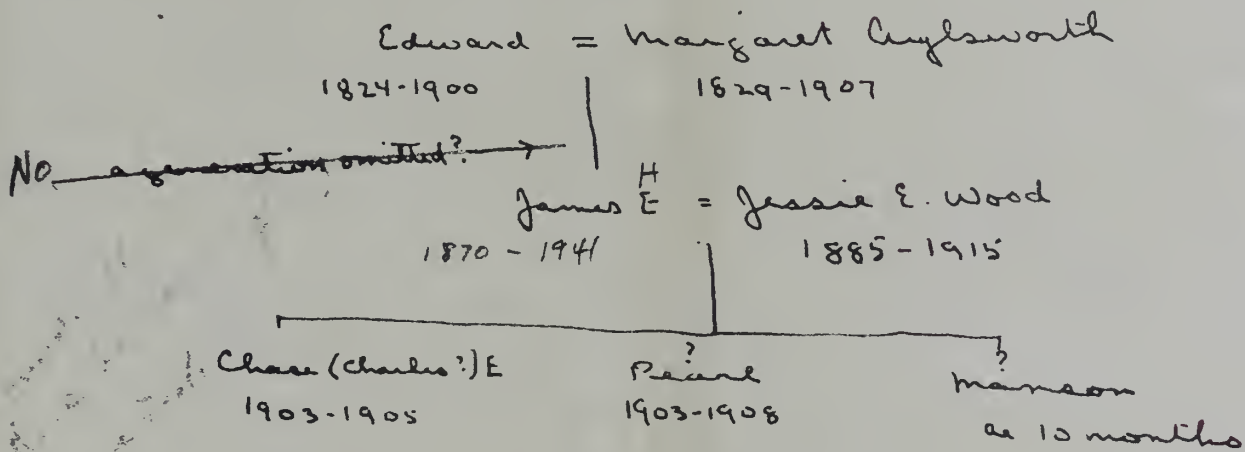 Edward = Margaret Aylsworth
1824-1900 1829-1907
No a generation omitted?
H
James E = Jessie E. Wood
1870-1941 1885-1915
? ?
Chase (Charles?) E Pearl Manson
1903-1905 1903-1908 ae 10 months